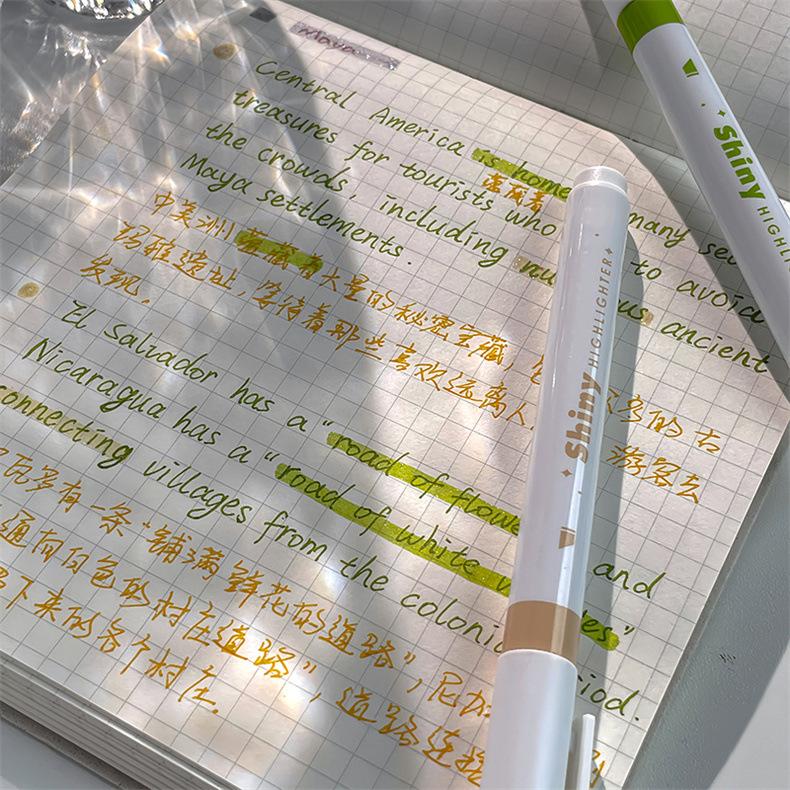 Maya
Central America is home many sec
蕴藏着
treasures for tourists who to avoid
the crowds, including nu us ancient
Maya settlements.
中美洲蕴藏着大量的秘密宝藏, 古
玛雅遗址,等待着那些喜欢远离人 游客去
发现.
El Salvador has a "road of flowe and
Nicaragua has a "road of white v es"
connecting villages from the coloni iod.
瓦多有一条"铺满鲜花的道路", 尼加
通向白色的村庄道路", 道路连接
下来的各个村庄.
Shiny HIGHLIGHTER
Shiny HIGHLI